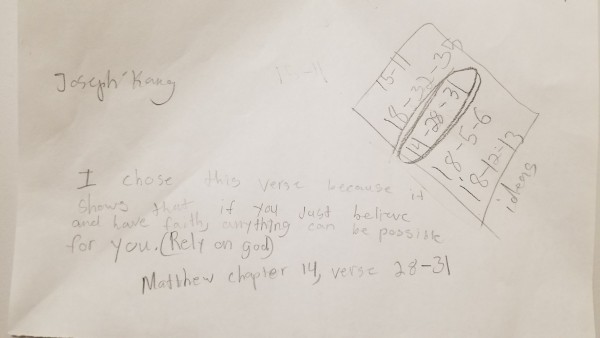 Joseph Kang
15-11
18-32-35
14-28-31
18-5-6
18-12-13
ideas
I chose this verse because it
shows that if you just believe
and have faith, anything can be possible
for you. (Rely on god)
Matthew chapter 14, verse 28-31